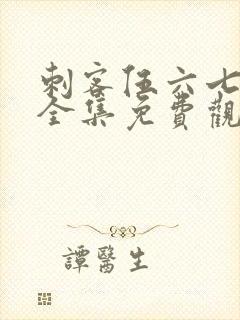 刺客伍六七
全集免費觀
譚醫生